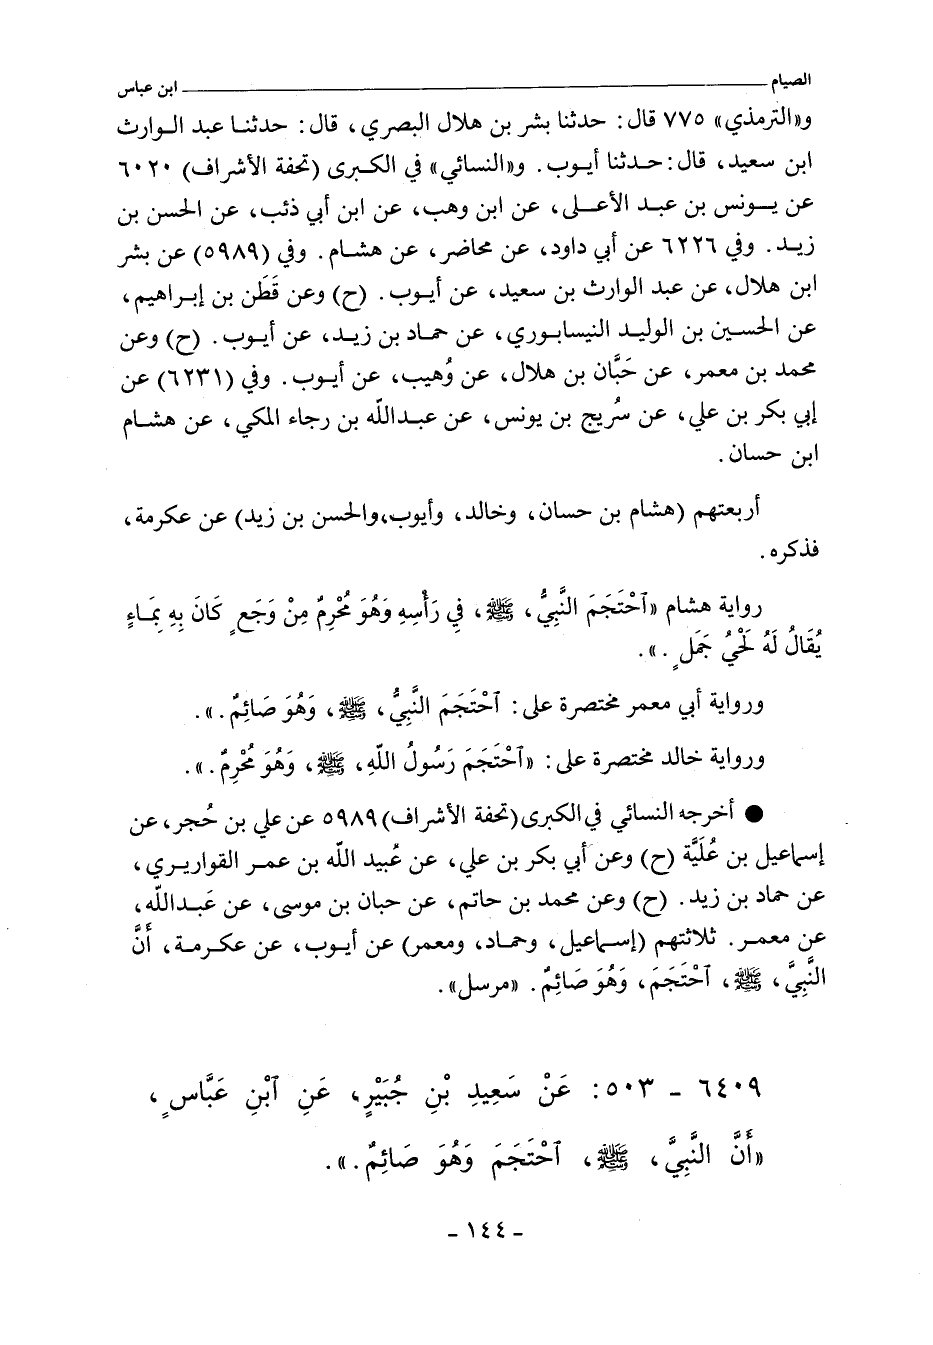 الصيام ــــــــــــــــــــ ابن عباس
و«الترمذي» ٧٧٥ قال: حدثنا بشر بن هلال البصري، قال: حدثنا عبد الوارث
ابن سعيد، قال: حدثنا أيوب. و«النسائي» في الكبرى (تحفة الأشراف) ٦٠٢٠
عن يونس بن عبد الأعلى، عن ابن وهب، عن ابن أبي ذئب، عن الحسن بن
زيد. وفي ٦٢٢٦ عن أبي داود، عن محاضر، عن هشام. وفي (٥٩٨٩) عن بشر
ابن هلال، عن عبد الوارث بن سعيد، عن أيوب. (ح) وعن قَطَن بن إبراهيم،
عن الحسين بن الوليد النيسابوري، عن حماد بن زيد، عن أيوب. (ح) وعن
محمد بن معمر، عن حَبَّان بن هلال، عن وُهيب، عن أيوب. وفي (٦٢٣١) عن
إبي بكر بن علي، عن سُريج بن يونس، عن عبدالله بن رجاء المكي، عن هشام
ابن حسان.
أربعتهم (هشام بن حسان، وخالد، وأيوب،والحسن بن زيد) عن عكرمة،
فذكره.
رواية هشام «ٱحْتَجَمَ النَّبِيُّ، ﷺ، فِي رَأْسِهِ وَهُوَ مُحْرِمٌ مِنْ وَجَعٍ كَانَ بِهِ بِمَاءٍ
يُقَالُ لَهُ لَحْيُ جَمَلٍ.».
ورواية أبي معمر مختصرة على: ٱحْتَجَمَ النَّبِيُّ، ﷺ، وَهُوَ صَائِمٌ.».
ورواية خالد مختصرة على: «ٱحْتَجَمَ رَسُولُ اللهِ، ﷺ، وَهُوَ مُحْرِمٌ.».
● أخرجه النسائي في الكبرى(تحفة الأشراف)٥٩٨٩ عن علي بن حُجر، عن
إسماعيل بن عُلَيَّة (ح) وعن أبي بكر بن علي، عن عُبيد الله بن عمر القواريري،
عن حماد بن زيد. (ح) وعن محمد بن حاتم، عن حبان بن موسى، عن عَبدالله،
عن معمر. ثلاثتهم (إسماعيل، وحماد، ومعمر) عن أيوب، عن عكرمة، أَنَّ
النَّبِيَّ، ﷺ، ٱحْتَجَمَ، وَهُوَ صَائِمٌ. «مرسل».
٦٤٠٩ - ٥٠٣: عَنْ سَعِيدِ بْنِ جُبَيْرٍ، عَنِ ٱبْنِ عَبَّاسٍ،
«أَنَّ النَّبِيَّ، ﷺ، ٱحْتَجَمَ وَهُوَ صَائِمٌ.».
- ١٤٤ -